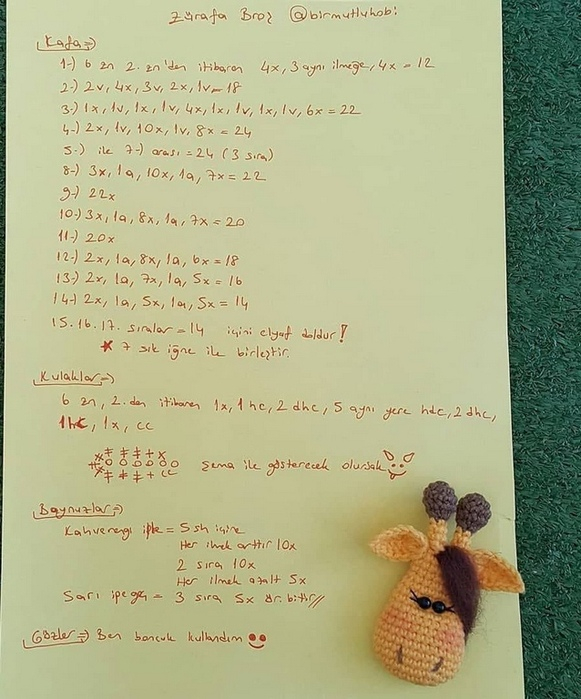 Zürafa Broş @birmutluhobi
Kafa=)
1-) 6 zn 2. zn'den itibaren 4x, 3 aynı ilmeğe, 4x = 12
2-) 2v, 4x, 3v, 2x, 1v = 18
3-) 1x, 1v, 1x, 1v, 4x, 1x, 1v, 1x, 1v, 6x = 22
4-) 2x, 1v, 10x, 1v, 8x = 24
5-) ile 7-) arası = 24 (3 sıra)
8-) 3x, 1a, 10x, 1a, 7x = 22
9-) 22x
10-) 3x, 1a, 8x, 1a, 7x = 20
11-) 20x
12-) 2x, 1a, 8x, 1a, 6x = 18
13-) 2x, 1a, 7x, 1a, 5x = 16
14-) 2x, 1a, 5x, 1a, 5x = 14
15. 16. 17. sıralar = 14 içini elyaf doldur!
* 7 sık iğne ile birleştir.
Kulaklar=)
6 zn, 2. den itibaren 1x, 1 hc, 2 dhc, 5 aynı yere hdc, 2 dhc,
1hc, 1x, cc
Şema ile gösterecek olursak
Boynuzlar=)
Kahverengi iple = 5 sh içine
Her ilmek arttır 10x
2 sıra 10x
Her ilmek azalt 5x
Sarı ipe geç = 3 sıra 5x ör. bitir//
Gözler=) Ben boncuk kullandım